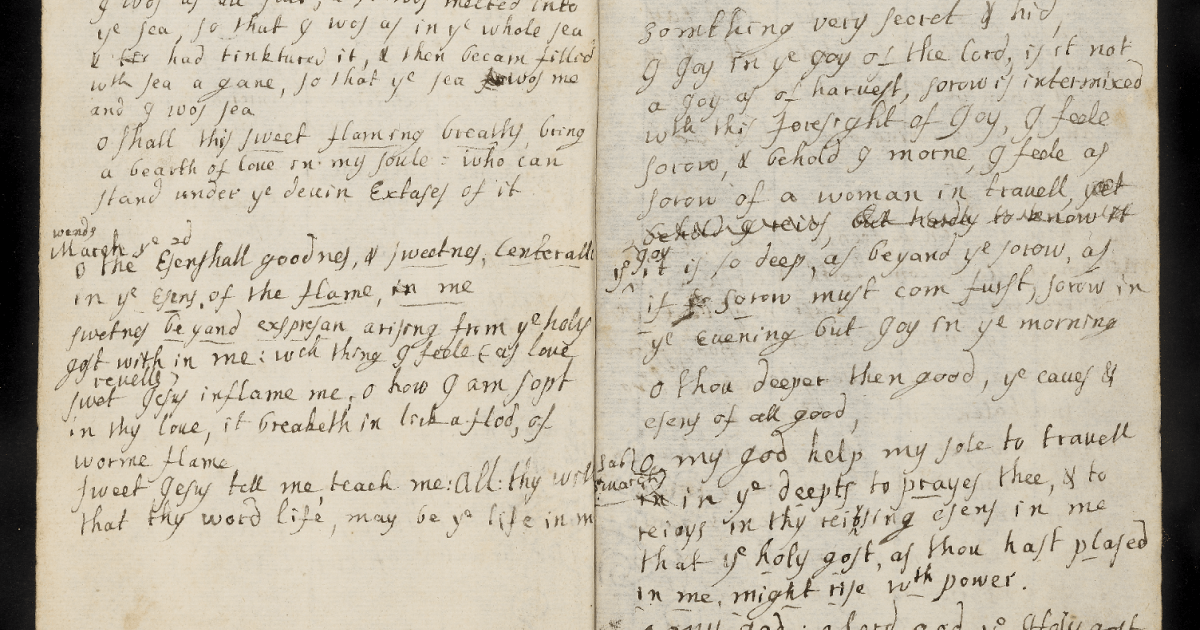 melted into
ye sea, so that I wos as in ye whole sea
& had tinktured it, & then becam filled
wth sea a gane, so that ye sea wos me
and I wos sea
o shall this sweet flaming breaths bring
a bearth of love in my soule : who can
stand under ye devin Extases of it
wends
March ye 2d
o the Esenshall goodnes, & sweetnes, Centerall
in ye Esens of the flame, in me
swetnes beyand exspresan arising from ye holy
gost with in me : wch thing I feele as love
revells
swet Jesus inflame me, o how I am sopt
in thy love, it breaketh in lick a flod, of
worme flame
sweet Jesus tell me, teach me : All : thy
that thy word life, may be ye life in m
something very secret & hid,
I Joy in ye Joy of the lord, is it not
a Joy as of harvest, sorow is intermixed
with this foresight of Joy, I feele
sorow, & behold I morne, I feele as
sorow of a woman in travell, yet
behold but hardly to know it
Joy
it is so deep, as beyand ye sorow, as
if sorow must com furst, sorow in
ye Evening but Joy in ye morning
o thou deeper then good, ye caues &
esens of all good,
o my god help my sole to travell
in ye deepts to prayes thee, & to
reioys in thy reiosing esens in me
that ye holy gost, as thou hast plased
in me, might rise wth power.
o my god : o lord god ye Holy gost